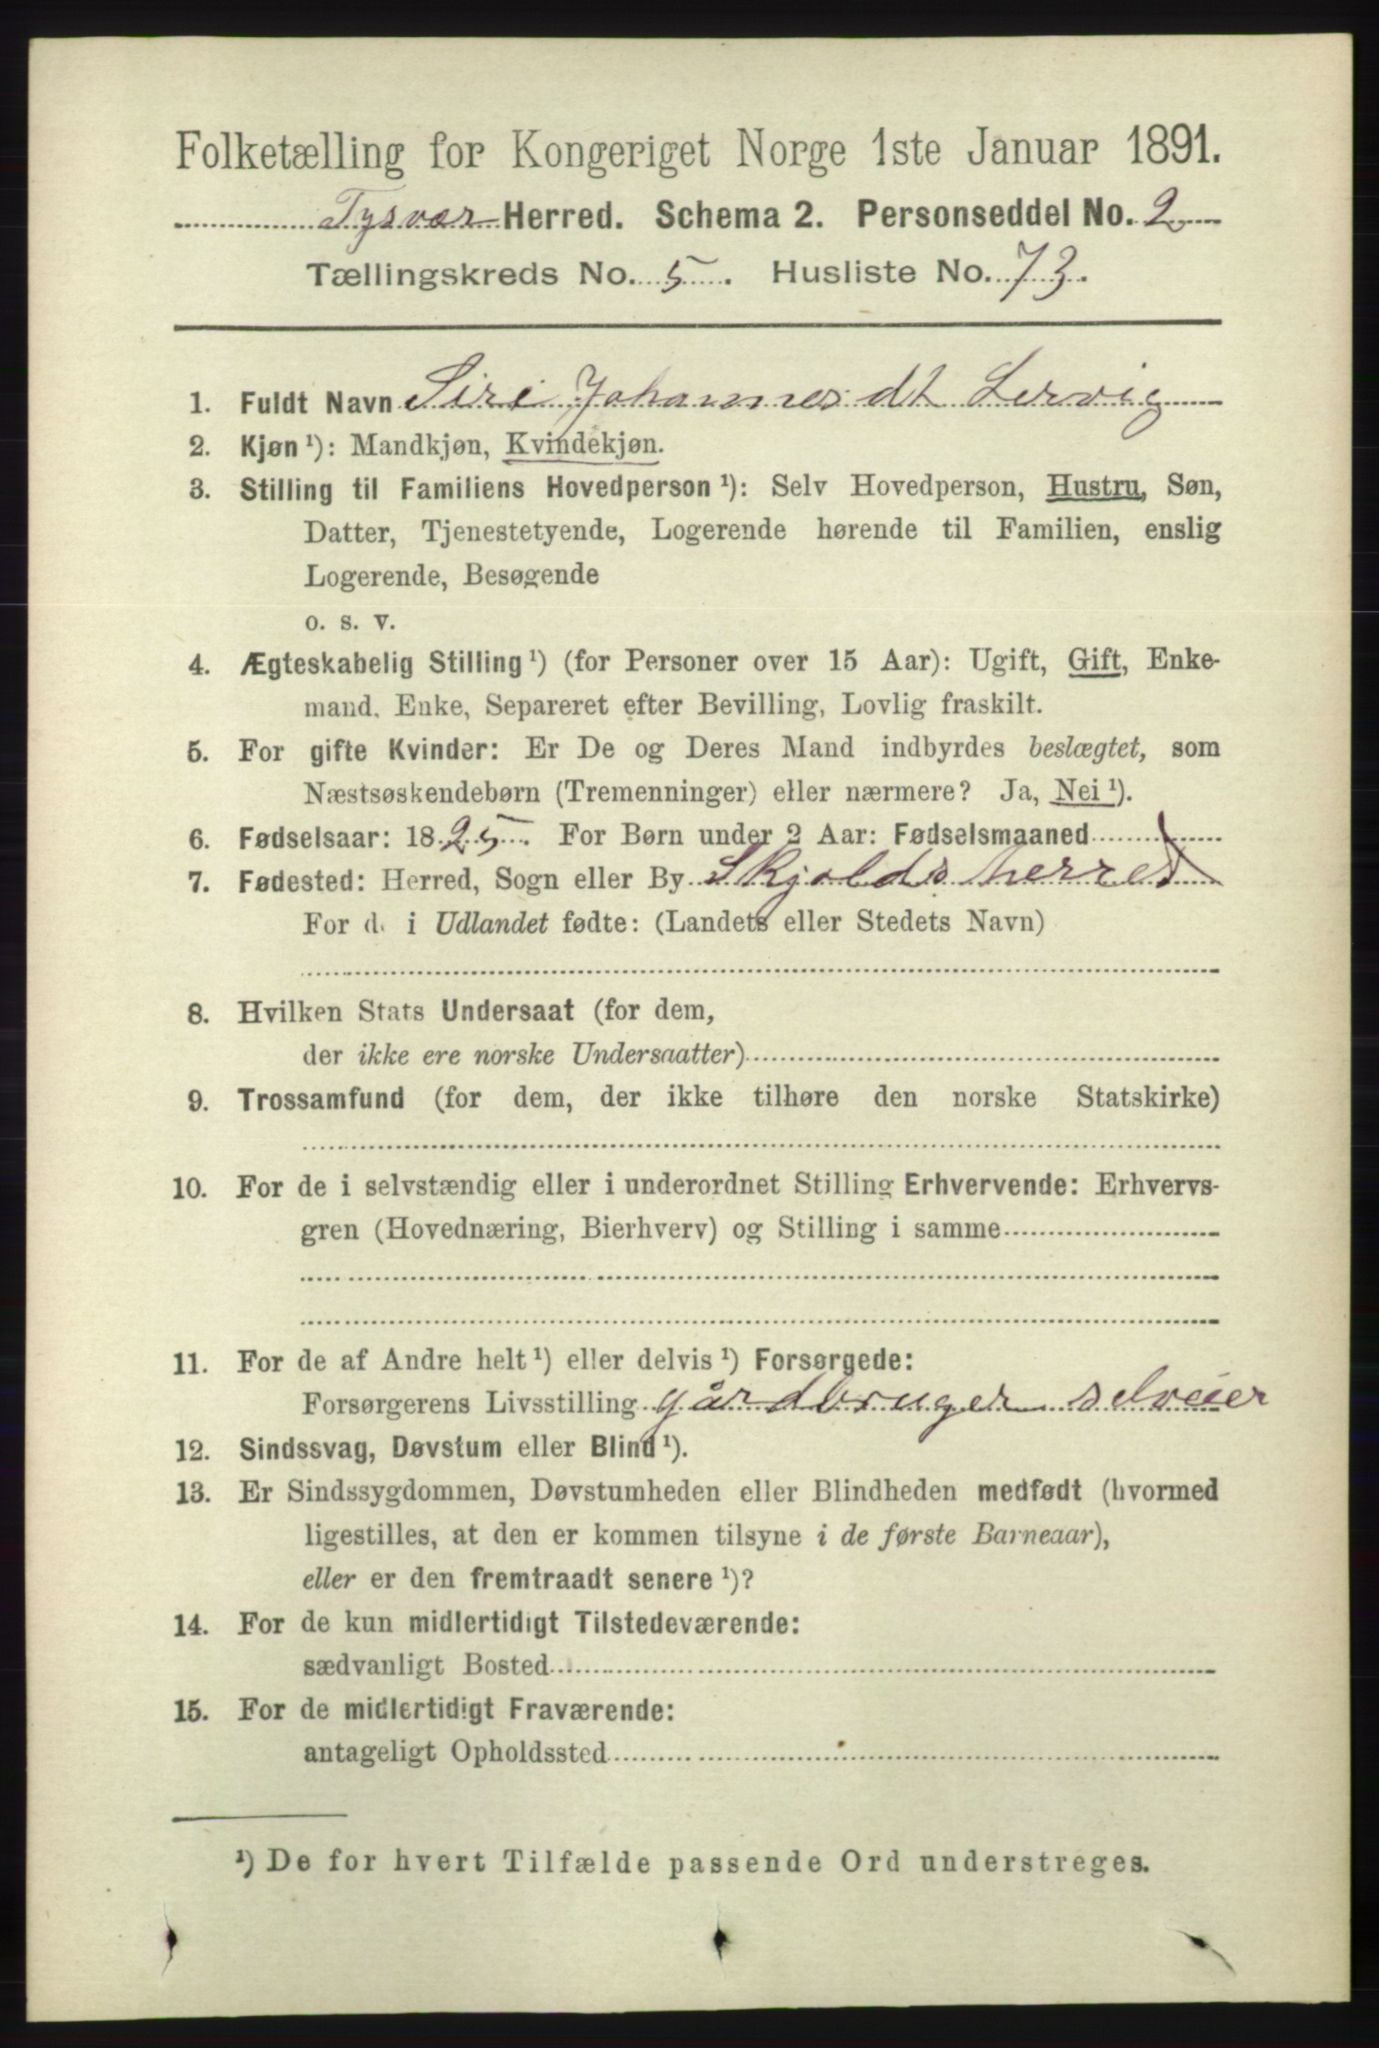 Folketælling for Kongeriget Norge 1ste Januar 1891.
Tysvær Herred. Schema 2. Personseddel No. 2
Tællingskreds No. 5. Husliste No. 73.
1. Fuldt Navn Siri Johannesdt Lervig
2. Kjøn ¹): Mandkjøn, Kvindekjøn.
3. Stilling til Familiens Hovedperson ¹): Selv Hovedperson, Hustru, Søn,
Datter, Tjenestetyende, Logerende hørende til Familien, enslig
Logerende, Besøgende
o. s. v.
4. Ægteskabelig Stilling ¹) (for Personer over 15 Aar): Ugift, Gift, Enke-
mand, Enke, Separeret efter Bevilling, Lovlig fraskilt.
5. For gifte Kvinder: Er De og Deres Mand indbyrdes beslægtet, som
Næstsøskendebørn (Tremenninger) eller nærmere? Ja, Nei ¹).
6. Fødselsaar: 1825. For Børn under 2 Aar: Fødselsmaaned
7. Fødested: Herred, Sogn eller By Skjolds herred
For d. i Udlandet fødte: (Landets eller Stedets Navn)
8. Hvilken Stats Undersaat (for dem,
der ikke ere norske Undersaatter)
9. Trossamfund (for dem, der ikke tilhøre den norske Statskirke)
10. For de i selvstændig eller i underordnet Stilling Erhvervende: Erhvervs-
gren (Hovednæring, Bierhverv) og Stilling i samme
11. For de af Andre helt ¹) eller delvis ¹) Forsørgede:
Forsørgerens Livsstilling gårdbruger selveier
12. Sindssvag, Døvstum eller Blind ¹).
13. Er Sindssygdommen, Døvstumheden eller Blindheden medfødt (hvormed
ligestilles, at den er kommen tilsyne i de første Barneaar),
eller er den fremtraadt senere ¹)?
14. For de kun midlertidigt Tilstedeværende:
sædvanligt Bosted
15. For de midlertidigt Fraværende:
antageligt Opholdssted
¹) De for hvert Tilfælde passende Ord understreges.